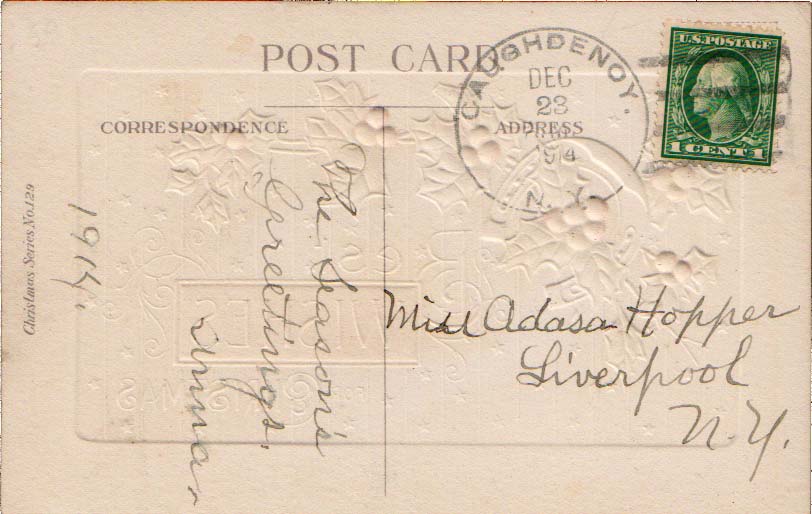 POST CARD
CORRESPONDENCE
ADDRESS
CAUGHDENOY.
DEC
23
N. Y.
U.S. POSTAGE
1 CENT 1
Christmas Series No. 129
1914.
The Season's
Greetings.
Anna
Miss Adasa Hopper
Liverpool
N.Y.
BEST
WISHES
FOR
CHRISTMAS